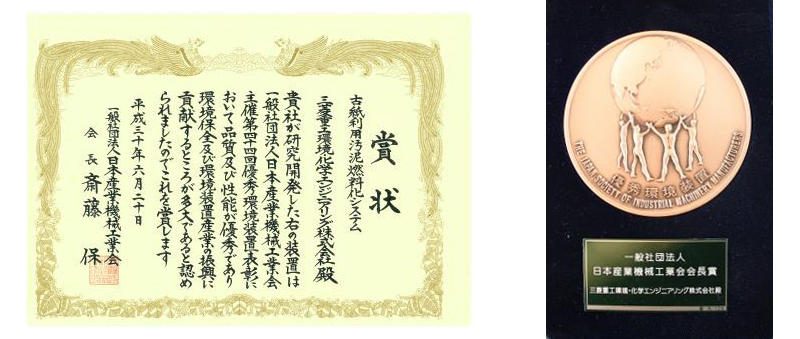 賞状
古紙利用汚泥燃料化システム
三菱重工環境・化学エンジニアリング株式会社殿
貴社が研究開発した右の装置は
一般社団法人日本産業機械工業会
主催第四十四回優秀環境装置表彰に
おいて品質及び性能が優秀であり
環境保全及び環境装置産業の振興に
貢献するところが多大であると認め
られましたのでこれを賞します
平成三十年六月二十日
一般社団法人日本産業機械工業会
会長 斎藤 保
優秀環境装置
THE JAPAN SOCIETY OF INDUSTRIAL MACHINERY MANUFACTURERS
一般社団法人
日本産業機械工業会会長賞
三菱重工環境・化学エンジニアリング株式会社殿